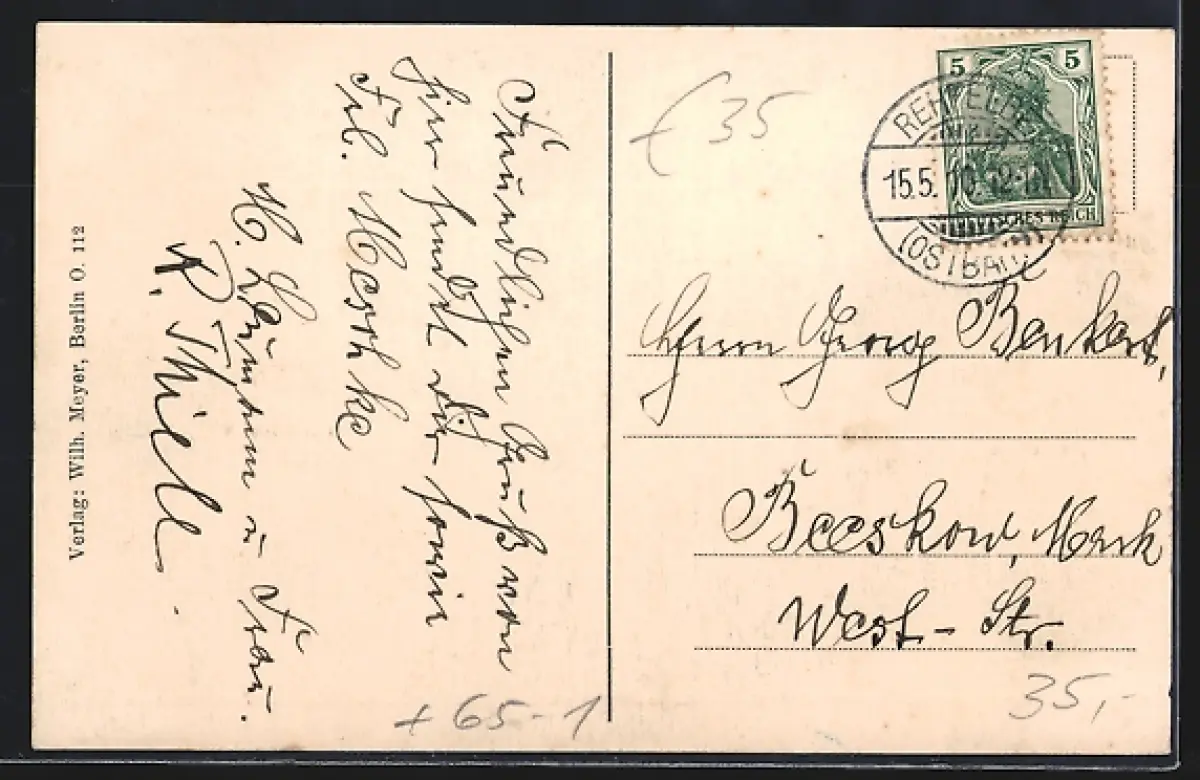 Verlag: Wilh. Meyer, Berlin O. 112
Freundlichen Gruß von
hier sendet Dir sowie
Frl.
H. u. Frau.
R. Thiele
+ 65-1
35
5 5
DEUTSCHES REICH
REHFELDE
15.5.10. 12-1N
(OSTBAHN)
Herrn Georg Benkert,
Beeskow, Mark
West-Str.
35,-